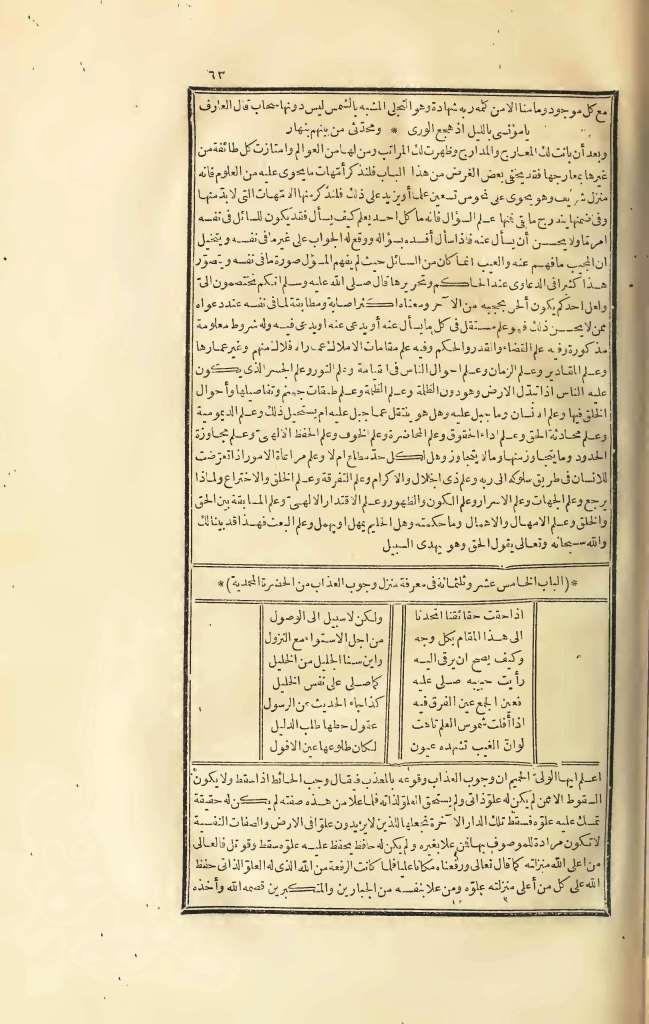 ٦٣
مع كل موجود وما منا الا من كلمه ربه شهادة وهو التجلي المشبه بالشمس ليس دونها سحاب قال العارف
يا مؤنسي بالليل اذ هجع الورى * ومحدثي من بينهم بنهار
وبعد أن بانت لك المعارج والمدارج وظهرت لك المراتب ومن لها من العوالم وامتازت كل طائفة من
غيرها بمعارجها فقد يحق بعض الغرض من هذا الباب فلنذكر أمهات ما يحوى عليه من العلوم فانه
منزل شريف وهو يحوى على نحو من تسعين علما أو يزيد على ذلك فلنذكر منها الامهات التي لا بد منها
وفي ضمنها يندرج ما بقى فمنها علم السؤال فانه ما كل احد يعلم كيف يسأل فقد يكون للسائل في نفسه
امر ما ولا يحسن أن يسأل عنه فاذا سأل أفسده بسؤاله ووقع له الجواب على غير ما في نفسه ويتخيل
ان المجيب ما فهم عنه والعيب انما كان من السائل حيث لم يفهم المسؤل صورة ما في نفسه ويتصور
هذا كثيرا في الدعاوى عند الحاكم وتحريرها قال صلى الله عليه وسلم انكم لتختصمون الي
ولعل احدكم يكون ألحن بحجته من الآخر ومعناه اكثر اصابة ومطابقة لما في نفسه عند دعواه
ممن لا يحسن ذلك فهو علم مستقل في كل ما يسأل عنه أو يدعى عنه او يدعى فيه وله شروط معلومة
مذكورة وفيه علم القضاء والقدر والحكم وفيه علم مقامات الاملاك عمار الافلاك منهم وغير عمارها
وعلم المقادير وعلم الزمان وعلم احوال الناس في القيامة وعلم النور وعلم الجسر الذي يكون
عليه الناس اذا تبدل الارض وهو دون الظلمة وعلم الظلمة وعلم طبقات جهنم وتفاصيلها وأحوال
الخلق فيها وعلم الانسان وما جبل عليه وهل هو ينتقل عما جبل عليه ام يستحيل ذلك وعلم الديمومية
وعلم محادثة الحق وعلم اداء الحقوق وعلم المحاضرة وعلم الخوف وعلم الحفظ الالهي وعلم مجاوزة
الحدود وما يتجاوز منها وما لا يتجاوز وهل لكل حد مطلع ام لا وعلم مراعاة الامور اذا تعرضت
للانسان في طريق سلوكه الى ربه وعلم ذي الجلال والاكرام وعلم التفرقة وعلم الخلق والاختراع ولماذا
يرجع وعلم الجهات وعلم الاسرار وعلم الكون والظهور وعلم الاقتدار الالهي وعلم المسابقة بين الحق
والخلق وعلم الامهال والاهمال وما حكمته وهل الحليم يمهل او يهمل وعلم البعث فهذا قد بينا لك
والله سبحانه وتعالى يقول الحق وهو يهدى السبيل
*(الباب الخامس عشر وثلثمائة في معرفة منزل وجوب العذاب من الحضرة المحمدية)*
اذا حقت حقائقنا اتحدنا ولكن لا سبيل الى الوصول
الى هذا المقام بكل وجه من اجل الاستواء مع النزول
وكيف يصح ان يرقى اليه واين سنا الجليل من الخليل
رأيت حبيبه صلى عليه كما صلى على نفس الخليل
فعين الجمع عين الفرق فيه كذا جاء الحديث عن الرسول
اذا أفلت شموس العلم تاهت عقول حظها طلب الدليل
لو ان الغيب تشهده عيون لكان طلوعها عين الافول
اعلم ايها الولي الحميم ان وجوب العذاب وقوعه بالمعذب فيقال وجب الحائط اذا سقط ولا يكون
السقوط الا ممن لم يكن له علو ذاتي ولم يستحق العلو لذاته فلما علا من هذه صفته لم يكن له حقيقة
تمسك عليه علوه فسقط تلك الدار الآخرة نجعلها للذين لا يريدون علوا في الارض والصفات النفسية
لا تكون مرادة للموصوف بها فمن علا بغيره ولم يكن له حافظ يحفظ عليه علوه سقط وقوتل فالعالي
من اعلى الله منزلته كما قال تعالى ورفعناه مكانا عليا فلما كانت الرفعة من الله الذي له العلو الذاتي حفظ
الله على كل من أعلى منزلته علوه ومن علا بنفسه من الجبارين والمتكبرين قصمه الله وأخذه